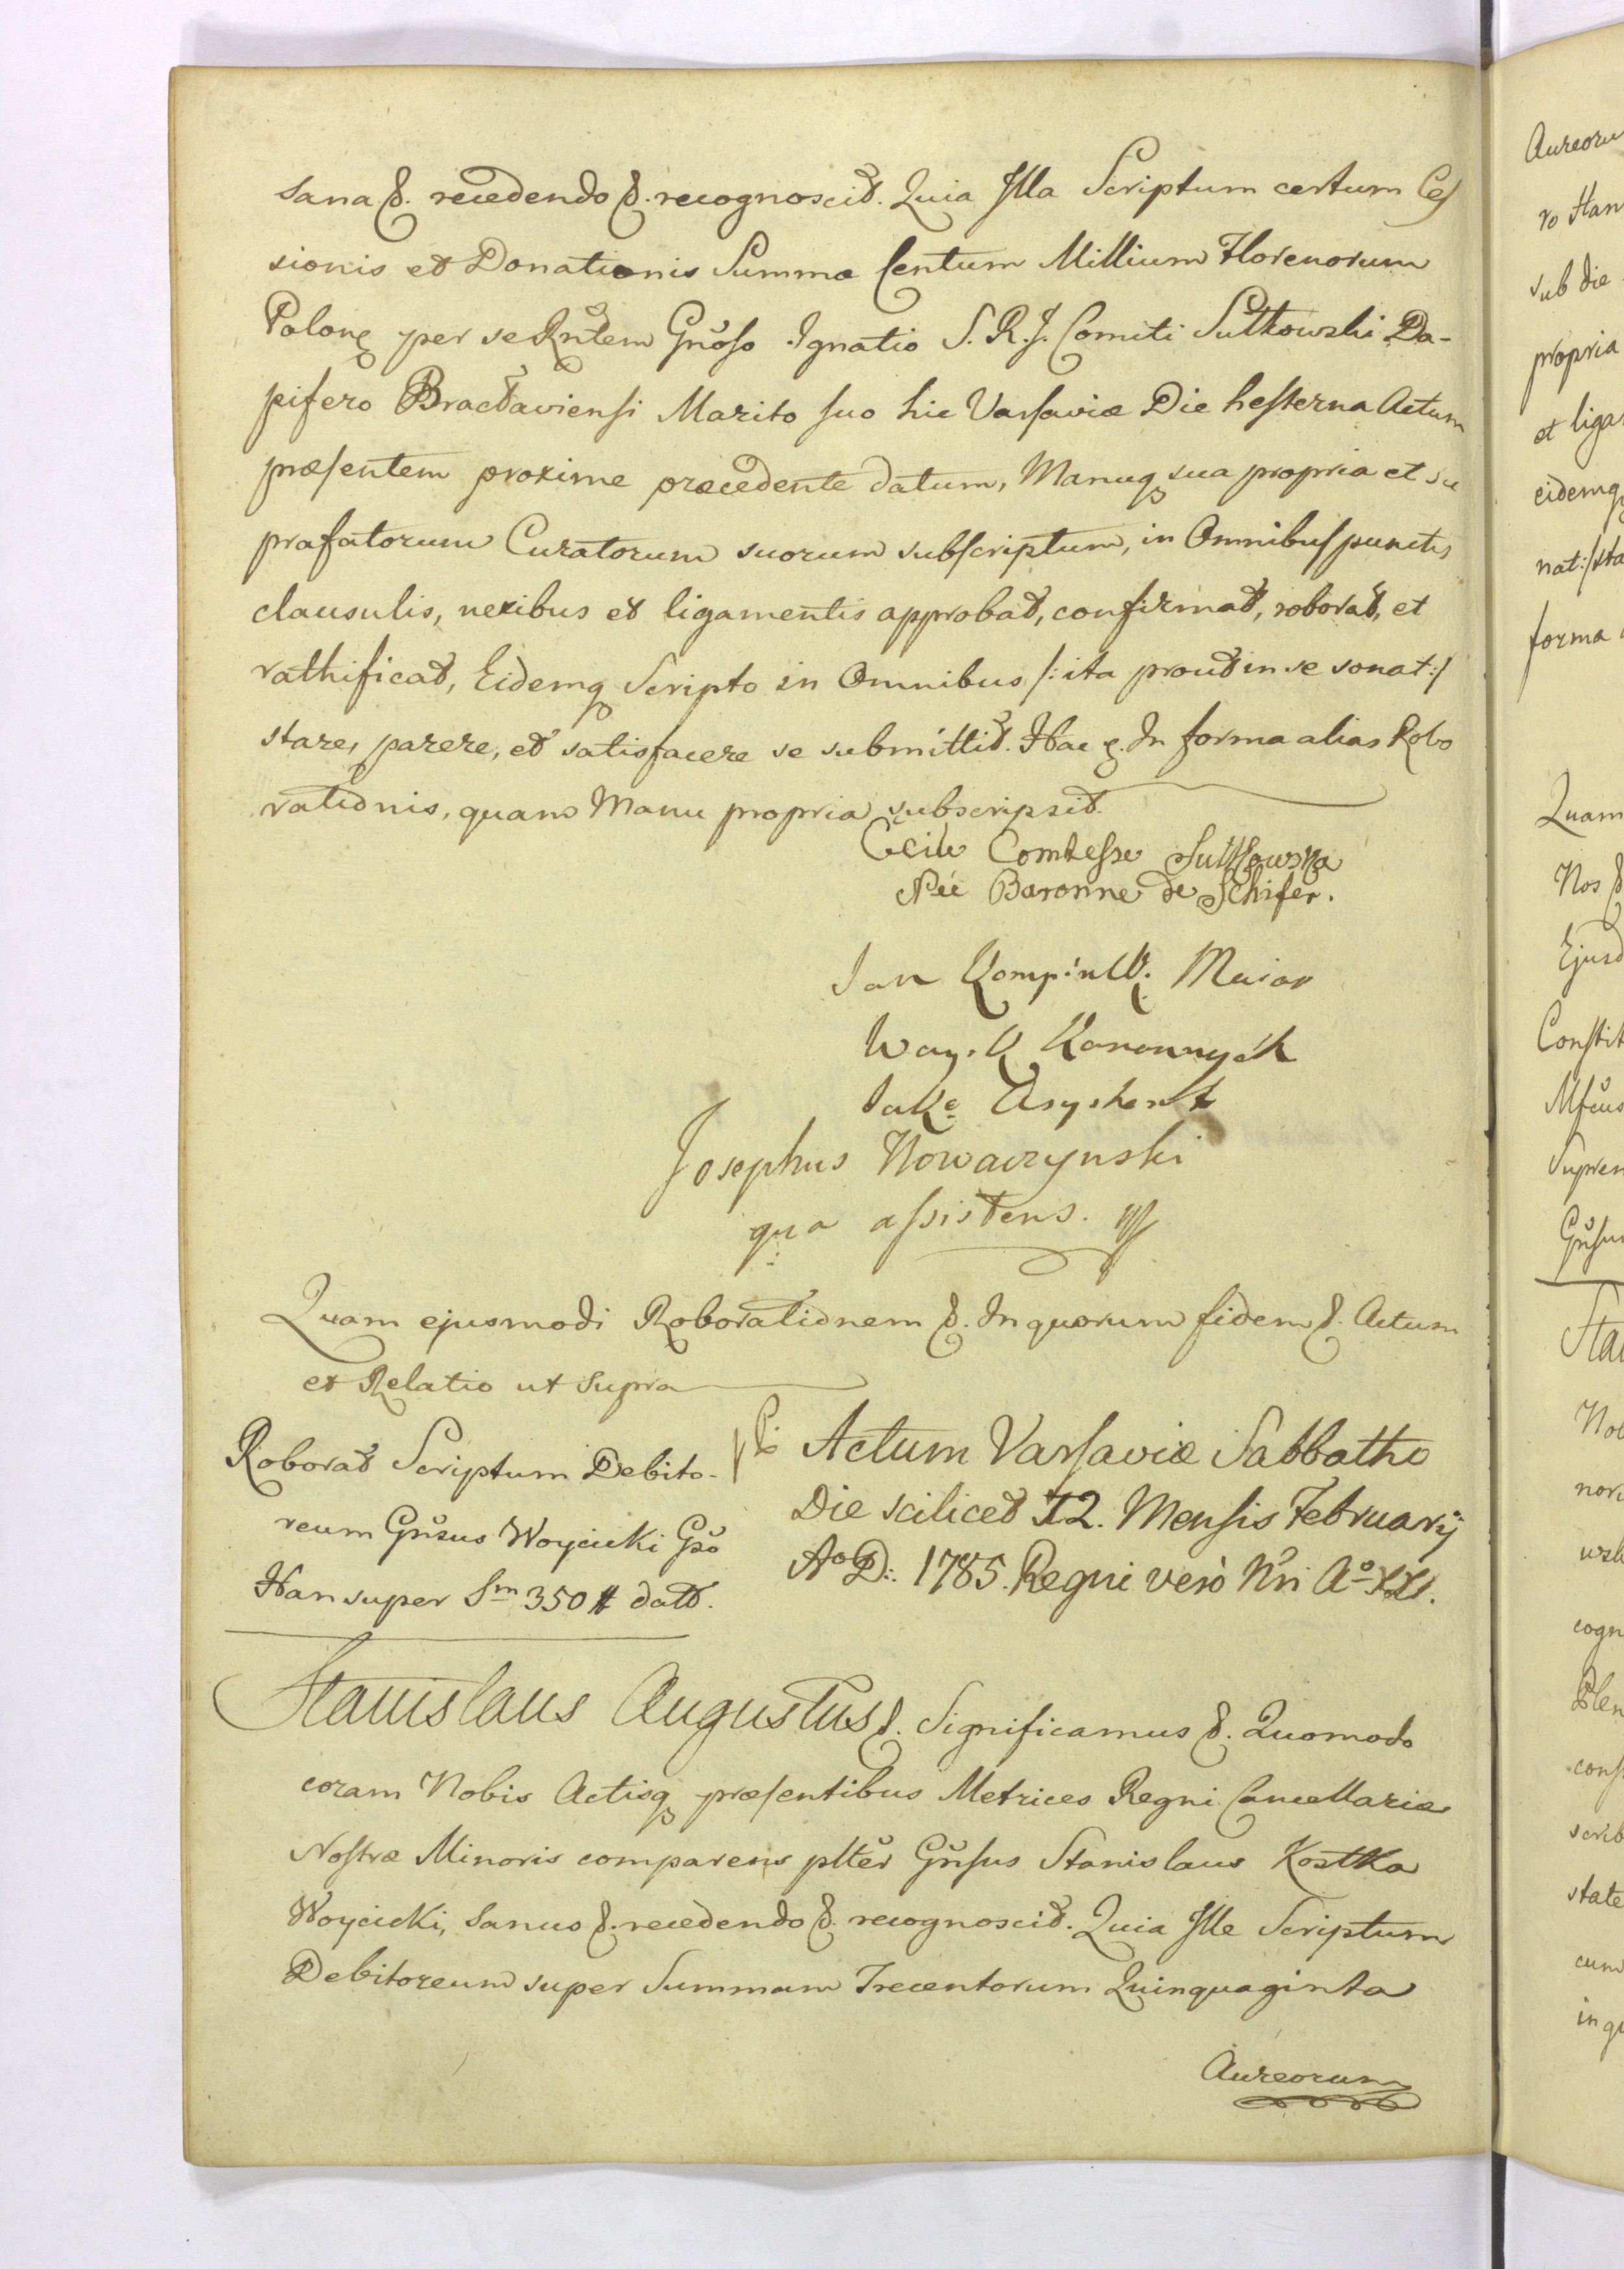 Sana &. recedendo &. recognoscit. Quia Illa Scriptum certum Ces
sionis et Donationis Summæ Centum Millium Florenorum
Polonę per se Rñtem Gnõso Ignatio S. R. J. Comiti Sutkowski Da-
pifero Bractaviensi Marito suo hic Varsaviæ Die hesterna Actum
præsentem proxime præcedente datum, Manuq sua propria et su
præfatorum Curatorum suorum subscriptum, in Omnibus punctis
clausulis, nexibus et ligamentis approbat, confirmat, roborat, et
rathificat, Eidemq Scripto in Omnibus /: ita prout in se sonat :/
stare, parere, et satisfacere se submittit. Hac ę. In forma alias Robo
rationis, quam Manu propria subscripsit.
Cecile Comtesse Sutkowska
Née Baronne de Schifer.
Jan Maior
Way. K Koronnych
Jako Asystent
Josephus Nowaczynski
qua assistens. mp
Quam ejusmodi Roborationem &. In quorum fidem &. Actum
et Relatio ut Supra
Roborat Scriptum Debito-
reum Gñsus Woycicki Gso
Han super Sm 350 # datt.
Actum Varsaviæ Sabbatho
Die scilicet 12. Mensis Februarij
Ao D: 1785. Regni verò Nri Ao XXI.
Stanislaus Augustus &. Significamus &. Quomodo
coram Nobis Actisq præsentibus Metrices Regni Cancellariæ
Nostræ Minoris comparens pltěr Gñsus Stanislaus Kostka
Woycicki, Sanus &. recedendo &. recognoscit. Quia Ille Scriptum
Debitoreum super Summam Trecentorum Quinquaginta
Aureorum
Aureoru
ro Han
sub die
propria
et liga
eidemq
nat:/sta
forma
Quam
Nos &
Ejusd
Constit
Mfcus
Supren
Gñsus
Sta
No
nori
cogn
Plen
cons
scrib
state
cum
in qu